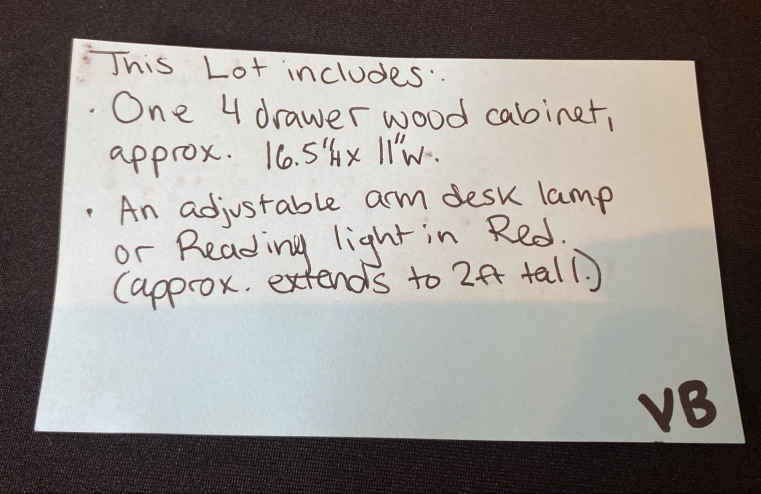 This Lot includes:
• One 4 drawer wood cabinet,
approx. 16.5"H x 11"W.
• An adjustable arm desk lamp
or Reading light in Red.
(approx. extends to 2ft tall.)
VB